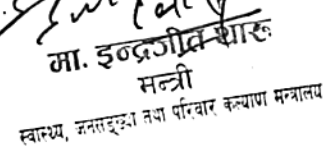 मा. इन्द्रजीत थारू
मन्त्री
स्वास्थ्य, जनसङ्ख्या तथा परिवार कल्याण मन्त्रालय